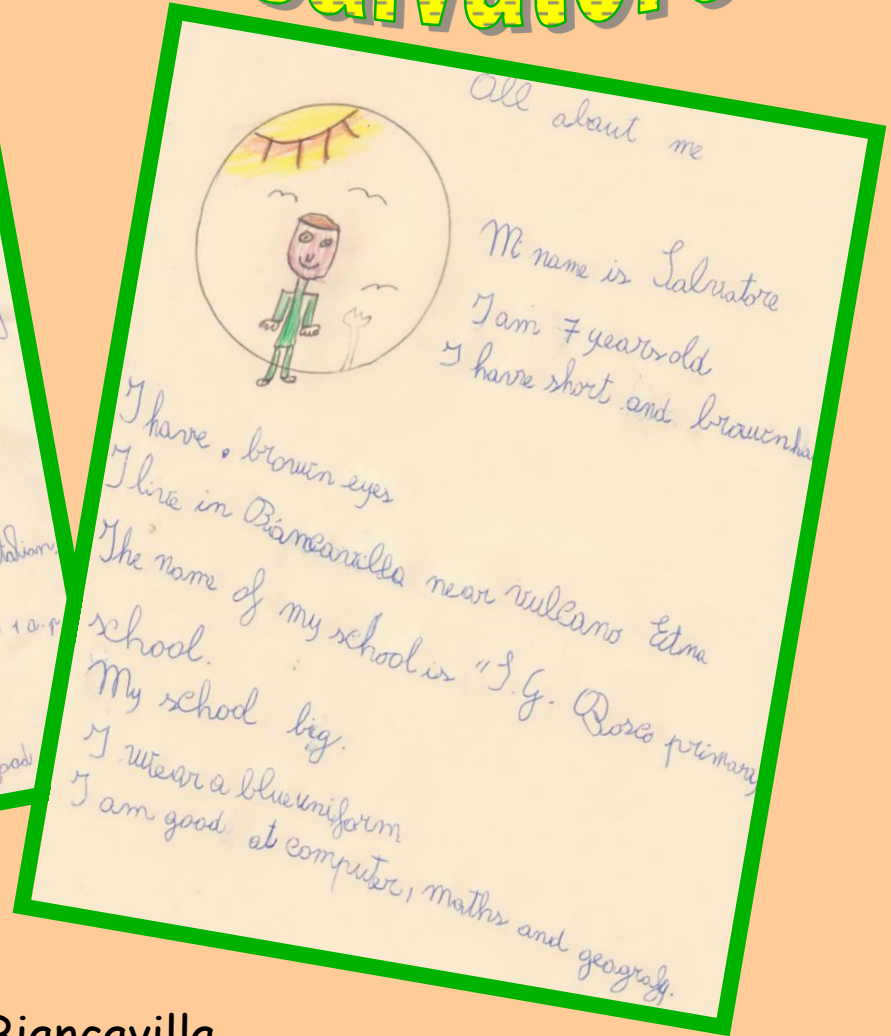 Salvatore
All about me
Mi name is Salvatore
I am 7 years old
I have short and brown ha
I have, brown eyes
I live in Biancavilla near vulcano Etna
The name of my school is "S.G. Bosco primary
school.
My school big.
I wear a blue uniform
I am good at computer, maths and geagrafy.
talian.
1 a.p
good
Biancavilla